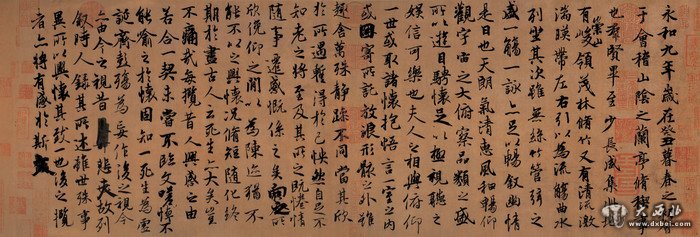 永和九年歲在癸丑暮春之初會
于會稽山陰之蘭亭脩稧事
也群賢畢至少長咸集此地
有崇山峻領茂林脩竹又有清流激
湍暎帶左右引以為流觴曲水
列坐其次雖無絲竹管弦之
盛一觴一詠亦足以暢敘幽情
是日也天朗氣清惠風和暢仰
觀宇宙之大俯察品類之盛
所以遊目騁懷足以極視聽之
娛信可樂也夫人之相與俯仰
一世或取諸懷抱悟言一室之內
或因寄所託放浪形骸之外雖
趣舍萬殊靜躁不同當其欣
於所遇蹔得於己怏然自足不
知老之將至及其所之既惓情
隨事遷感慨係之矣向之所
欣俛仰之閒以為陳迹猶不
能不以之興懷況脩短隨化終
期於盡古人云死生亦大矣豈
不痛哉每攬昔人興感之由
若合一契未嘗不臨文嗟悼不
能喻之於懷固知一死生為虛
誕齊彭殤為妄作後之視今
亦由今之視昔悲夫故列
敘時人錄其所述雖世殊事
異所以興懷其致一也後之攬
者亦將有感於斯文
www.dxbei.com